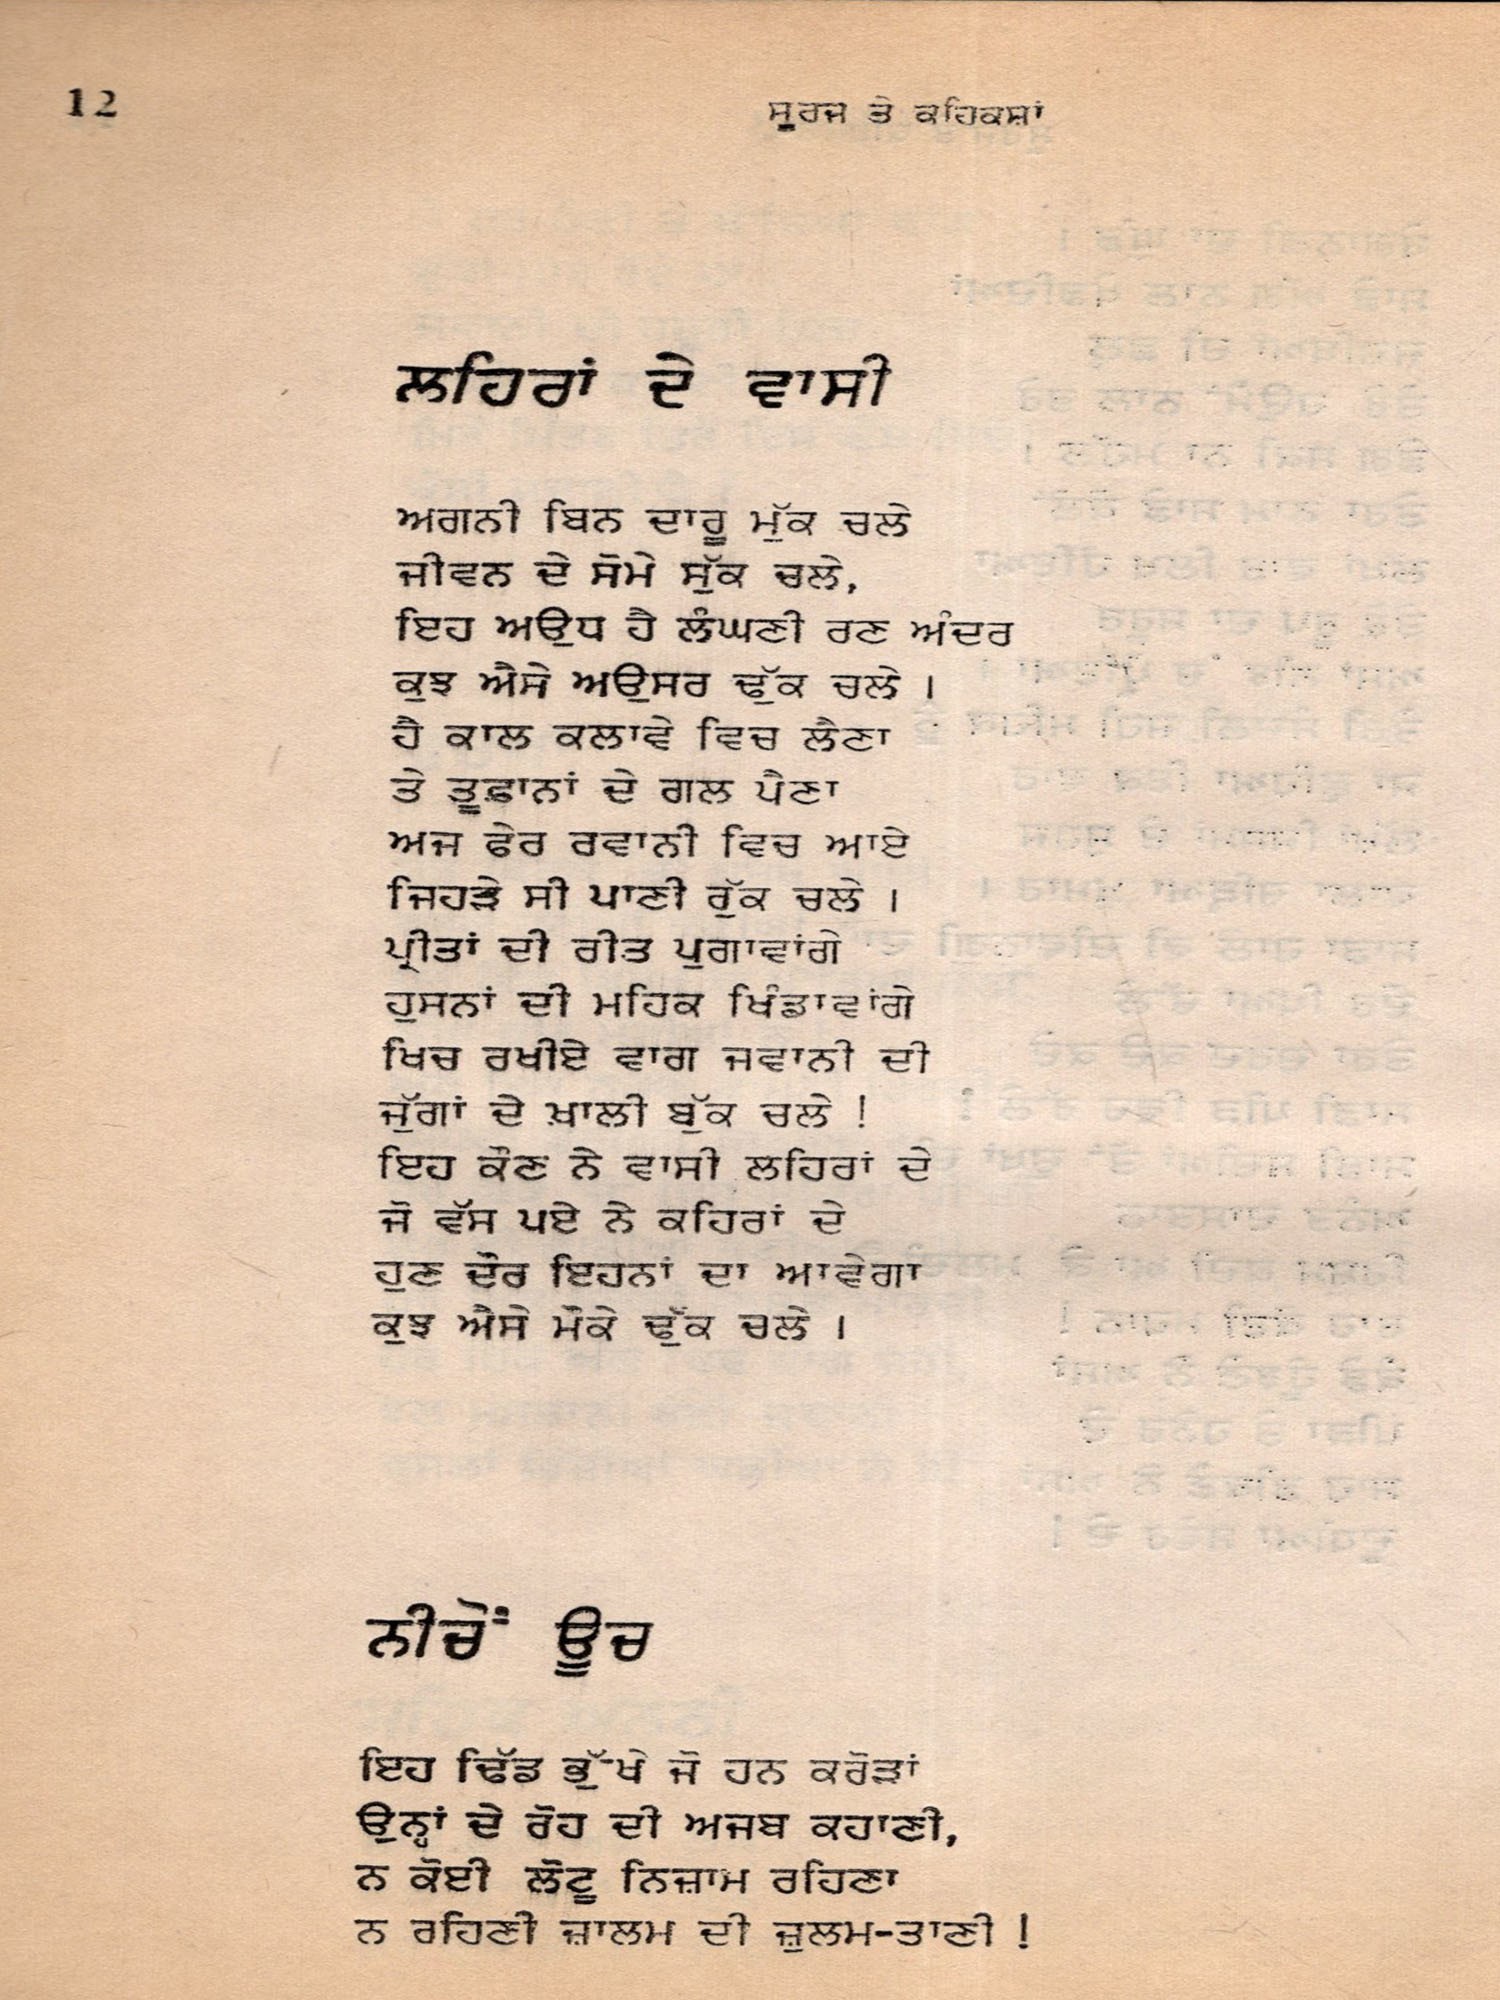 12
ਸੂਰਜ ਤੇ ਕਹਿਕਸ਼ਾਂ
ਲਹਿਰਾਂ ਦੇ ਵਾਸੀ
ਅਗਨੀ ਬਿਨ ਦਾਰੂ ਮੁੱਕ ਚਲੇ
ਜੀਵਨ ਦੇ ਸੋਮੇ ਸੁੱਕ ਚਲੇ,
ਇਹ ਅਉਧ ਹੈ ਲੰਘਣੀ ਰਣ ਅੰਦਰ
ਕੁਝ ਐਸੇ ਅਉਸਰ ਢੁੱਕ ਚਲੇ ।
ਹੈ ਕਾਲ ਕਲਾਵੇ ਵਿਚ ਲੈਣਾ
ਤੇ ਤੂਫ਼ਾਨਾਂ ਦੇ ਗਲ ਪੈਣਾ
ਅਜ ਫੇਰ ਰਵਾਨੀ ਵਿਚ ਆਏ
ਜਿਹੜੇ ਸੀ ਪਾਣੀ ਰੁੱਕ ਚਲੇ ।
ਪ੍ਰੀਤਾਂ ਦੀ ਰੀਤ ਪੁਗਾਵਾਂਗੇ
ਹੁਸਨਾਂ ਦੀ ਮਹਿਕ ਖਿੰਡਾਵਾਂਗੇ
ਖਿਚ ਰਖੀਏ ਵਾਗ ਜਵਾਨੀ ਦੀ
ਜੁੱਗਾਂ ਦੇ ਖ਼ਾਲੀ ਬੁੱਕ ਚਲੇ !
ਇਹ ਕੌਣ ਨੇ ਵਾਸੀ ਲਹਿਰਾਂ ਦੇ
ਜੋ ਵੱਸ ਪਏ ਨੇ ਕਹਿਰਾਂ ਦੇ
ਹੁਣ ਦੌਰ ਇਹਨਾਂ ਦਾ ਆਵੇਗਾ
ਕੁਝ ਐਸੇ ਮੌਕੇ ਢੁੱਕ ਚਲੇ ।
ਨੀਚੋਂ ਊਚ
ਇਹ ਢਿੱਡ ਭੁੱਖੇ ਜੋ ਹਨ ਕਰੋੜਾਂ
ਉਨ੍ਹਾਂ ਦੇ ਰੋਹ ਦੀ ਅਜਬ ਕਹਾਣੀ,
ਨ ਕੋਈ ਲੋਟੂ ਨਿਜ਼ਾਮ ਰਹਿਣਾ
ਨ ਰਹਿਣੀ ਜ਼ਾਲਮ ਦੀ ਜ਼ੁਲਮ-ਤਾਣੀ !